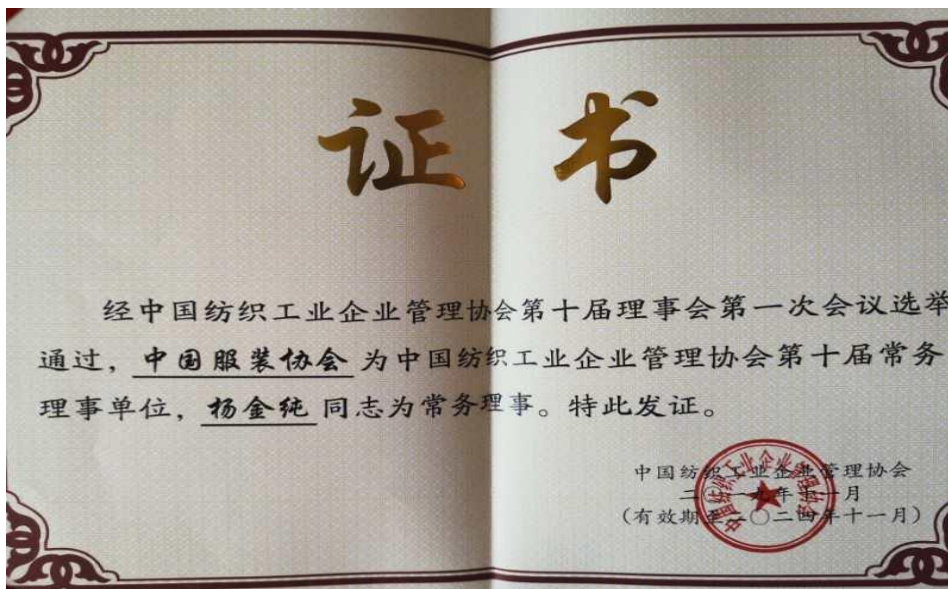 证书
经中国纺织工业企业管理协会第十届理事会第一次会议选举
通过，中国服装协会为中国纺织工业企业管理协会第十届常务
理事单位，杨金纯同志为常务理事。特此发证。
中国纺织工业企业管理协会
二〇一九年十一月
（有效期至二〇二四年十一月）
中国纺织工业企业管理协会